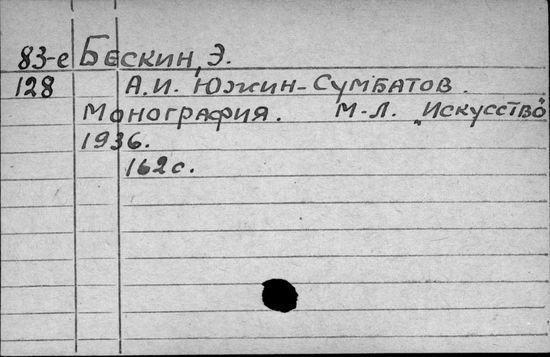 83-е Бескин, Э.
128 А.И. Южин-Сумбатов.
Монография. М-Л. „Искусство"
1936.
162с.